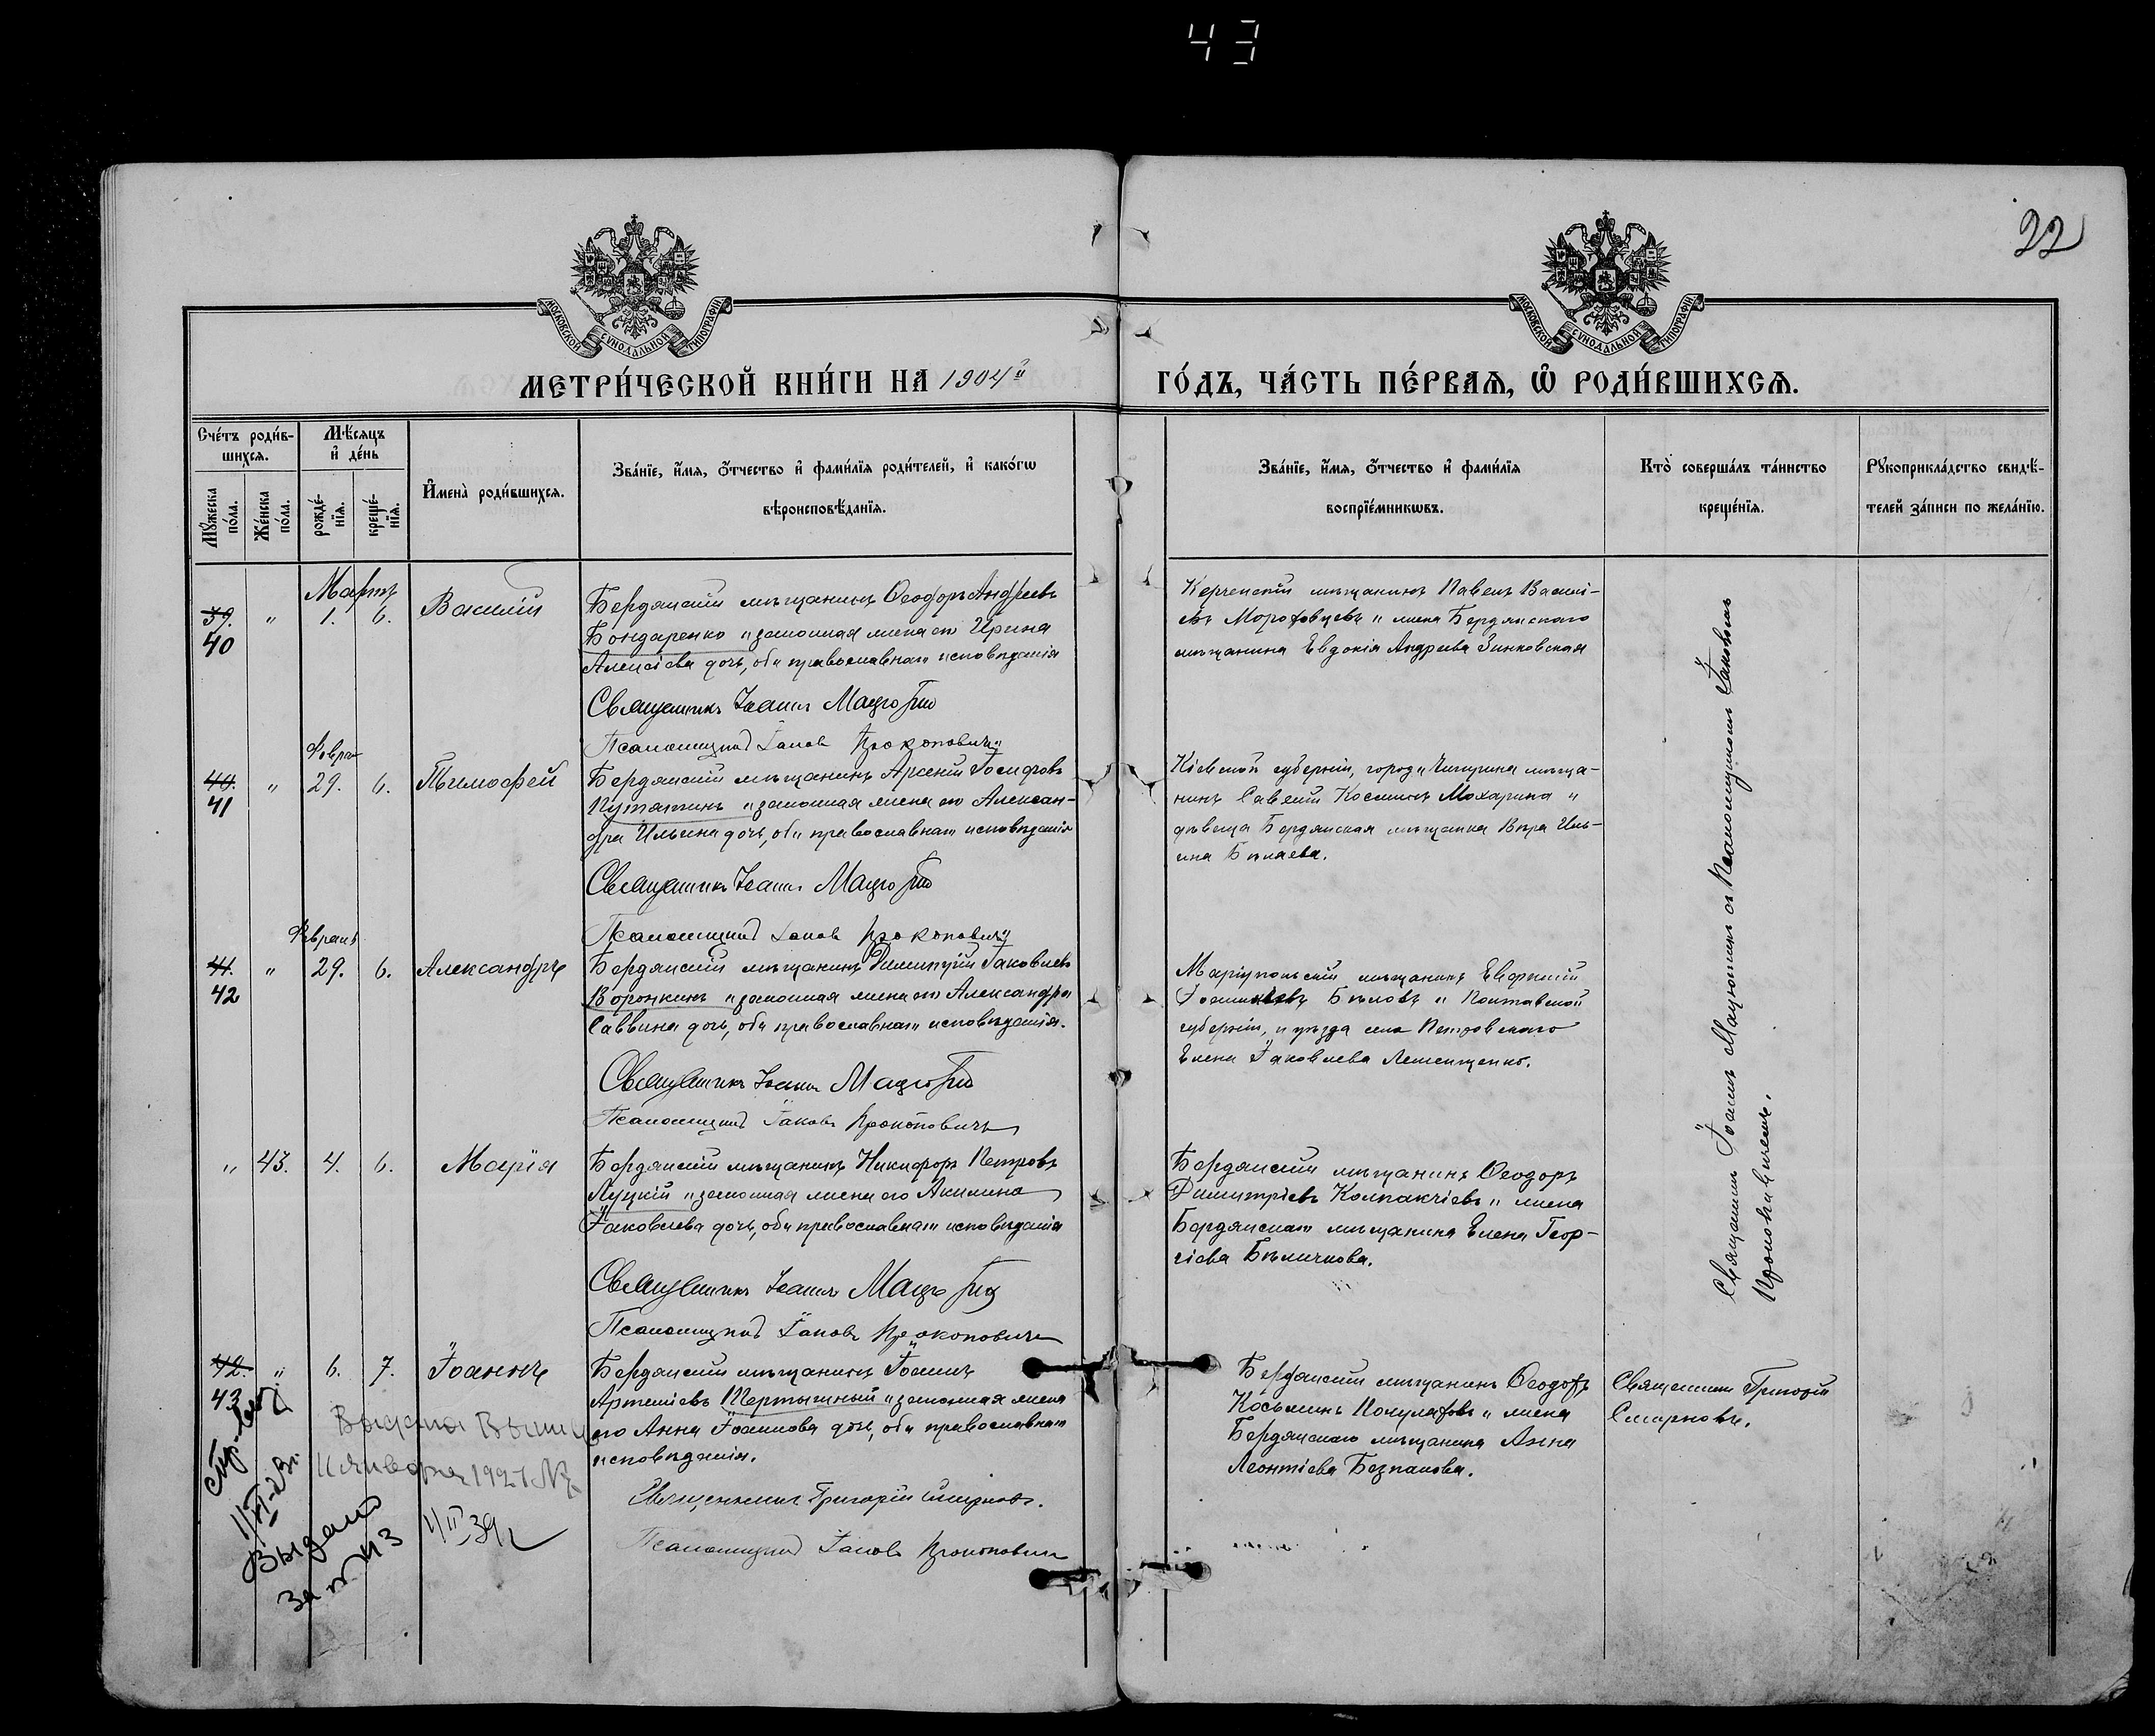 43
22
МОСКОВСКОЙ СѴНОДАЛЬНОЙ ТИПОГРАФІИ
МОСКОВСКОЙ СѴНОДАЛЬНОЙ ТИПОГРАФІИ
МЕТРИ́ЧЕСКОЙ КНИ́ГИ НА 1904й
ГО́ДЪ, ЧА́СТЬ ПЕ́РВАѦ, Ѽ РОДИ́ВШИХСѦ.
Сче́тъ роди́в-
шихсѧ.
Мѣ́сѧцъ
и҆ де́нь
Мꙋ́жеска
по́ла.
Же́нска
по́ла.
рожде́-
нїѧ.
креще́-
нїѧ.
И҆мена̀ роди́вшихсѧ.
Зва́нїе, и҆́мѧ, ѻ҆́тчество и҆ фами́лїѧ роди́телей, и҆ како́гѡ
вѣроисповѣ́данїѧ.
Зва́нїе, и҆́мѧ, ѻ҆́тчество и҆ фами́лїѧ
воспрїе́мникѡвъ.
Кто̀ соверша́лъ та́инство
креще́нїѧ.
Рꙋкоприкла́дство свидѣ́-
телей за́писи по жела́нїю.
Мартъ
39. " 1. 6. Василій
40
Бердянскій мѣщанинъ Ѳеодоръ Андреевъ
Бондаренко и законная жена его Ирина
Алексіева дочь, оба православнаго исповѣданія
Священникъ Іоаннъ
Псаломщикъ Іаковъ Прокоповичъ
Керченскій мѣщанинъ Павелъ Василі-
евъ и жена Бердянскаго
мѣщанина Евдокія Андреева Зинковская
Феврал
40. " 29. 6. Тимофей
41
Бердянскій мѣщанинъ Арсеній Іосифовъ
Путятинъ и законная жена его Алексан-
дра Ильина дочь, оба православнаго исповѣданія
Священникъ Іоаннъ
Псаломщикъ Іаковъ Прокоповичъ
Кіевской губерніи, города Чигирина мѣща-
нинъ Савелій Косминъ Мохарина и
дѣвица Бердянская мѣщанка Вѣра Иль-
ина Бѣлаева.
Февраль
41. " 29. 6. Александръ
42
Бердянскій мѣщанинъ Димитрій Іаковлевъ
Воронкинъ и законная жена его Александра
Саввина дочь, оба православнаго исповѣданія.
Священникъ Іоаннъ
Псаломщикъ Іаковъ Прокоповичъ
Маріупольскій мѣщанинъ Евфимій
Іоанновъ Бѣловъ и Полтавской
губерніи, и уѣзда села Петровскаго
Елена Іаковлева
" 43. 4. 6. Марія
Бердянскій мѣщанинъ Никифоръ Петровъ
Луцкій и законная жена его Акилина
Іаковлева дочь, оба православнаго исповѣданія
Священникъ Іоаннъ
Псаломщикъ Іаковъ Прокоповичъ
Бердянскій мѣщанинъ Ѳеодоръ
Димитріевъ Колпакчіевъ и жена
Бердянскаго мѣщанина Елена Геор-
гіева Бѣличкова.
Священникъ Іоаннъ съ Псаломщикомъ Іаковомъ
Прокоповичемъ.
42. " 6. 7. Іоаннъ
43
Бердянскій мѣщанинъ Іоаннъ
Артеміевъ Шертышный и законная жена
его Анна Іоаннова дочь, оба православнаго
исповѣданія.
Священникъ Григорій Смирновъ.
Псаломщикъ Іаковъ Прокоповичъ
Бердянскій мѣщанинъ Ѳеодоръ
Косьминъ и жена
Бердянскаго мѣщанина Анна
Леонтіева
Священникъ Григорій
Смирновъ.
Января 1927
Выдано
За № 43